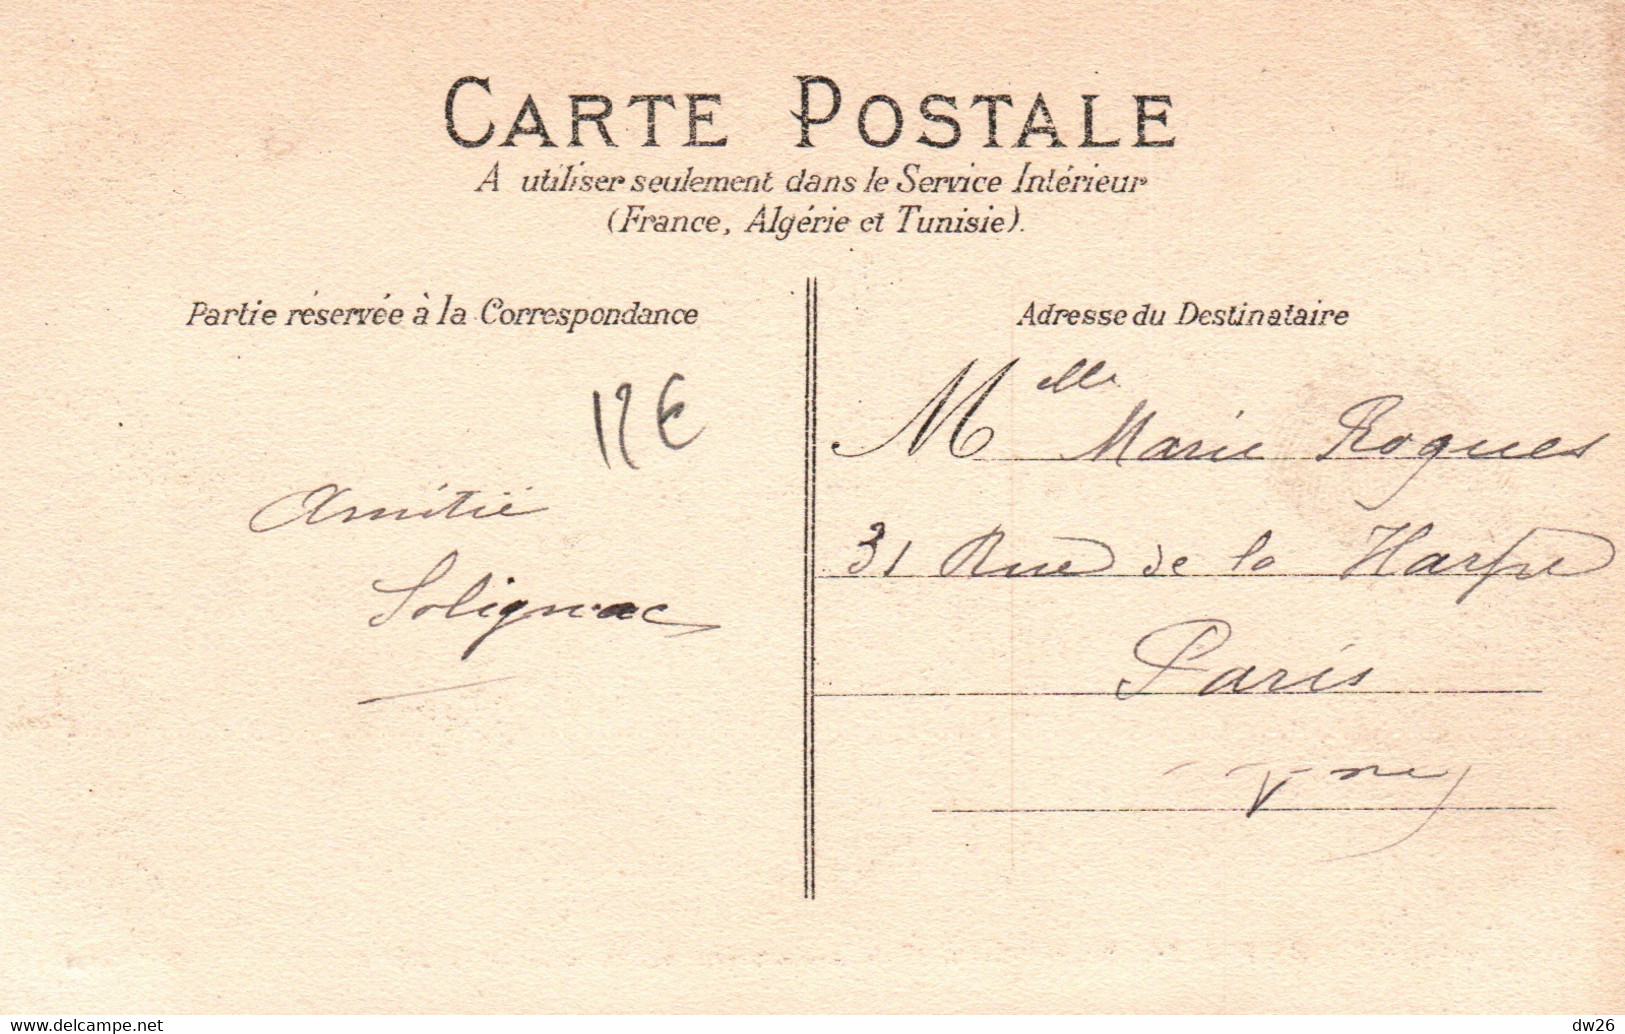 CARTE POSTALE
A utiliser seulement dans le Service Intérieur
(France, Algérie et Tunisie).
Partie réservée à la Correspondance
12€
Amitié
Solignac
Adresse du Destinataire
Melle Marie Rogues
31 Rue de la Harpe
Paris
Vme
delcampe.net
dw26